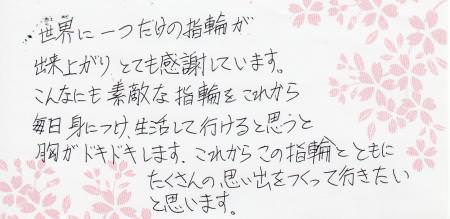 世界に一つだけの指輪が
出来上がり、とても感謝しています。
こんなにも素敵な指輪をこれから
毎日身につけ、生活して行けると思うと
胸がドキドキします。これからこの指輪とともに
たくさんの思い出をつくって行きたい
と思います。